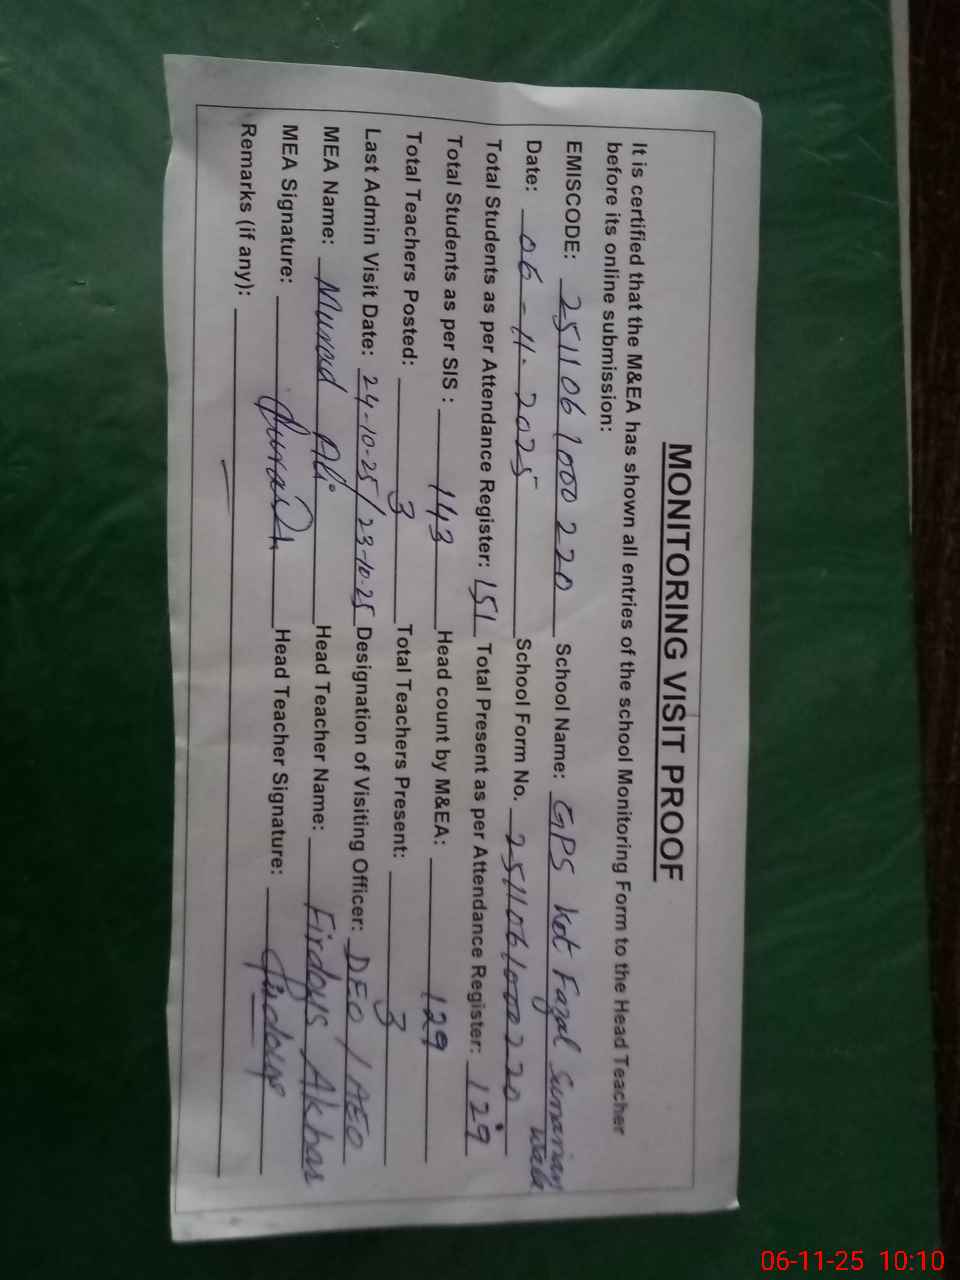 MONITORING VISIT PROOF
It is certified that the M&EA has shown all entries of the school Monitoring Form to the Head Teacher
before its online submission:
EMISCODE: 251106 1000 220 School Name: GPS Kot Fazal
Date: 06-11-2025 School Form No. 2511061000220
Total Students as per Attendance Register: 151 Total Present as per Attendance Register: 129
Total Students as per SIS : 143 Head count by M&EA: 129
Total Teachers Posted: 3 Total Teachers Present: 3
Last Admin Visit Date: 24-10-25/23-10-25 Designation of Visiting Officer: DEO / AEO
MEA Name: Murad Ali Head Teacher Name: Firdous
MEA Signature: Head Teacher Signature: Firdous
Remarks (if any): —
06-11-25 10:10